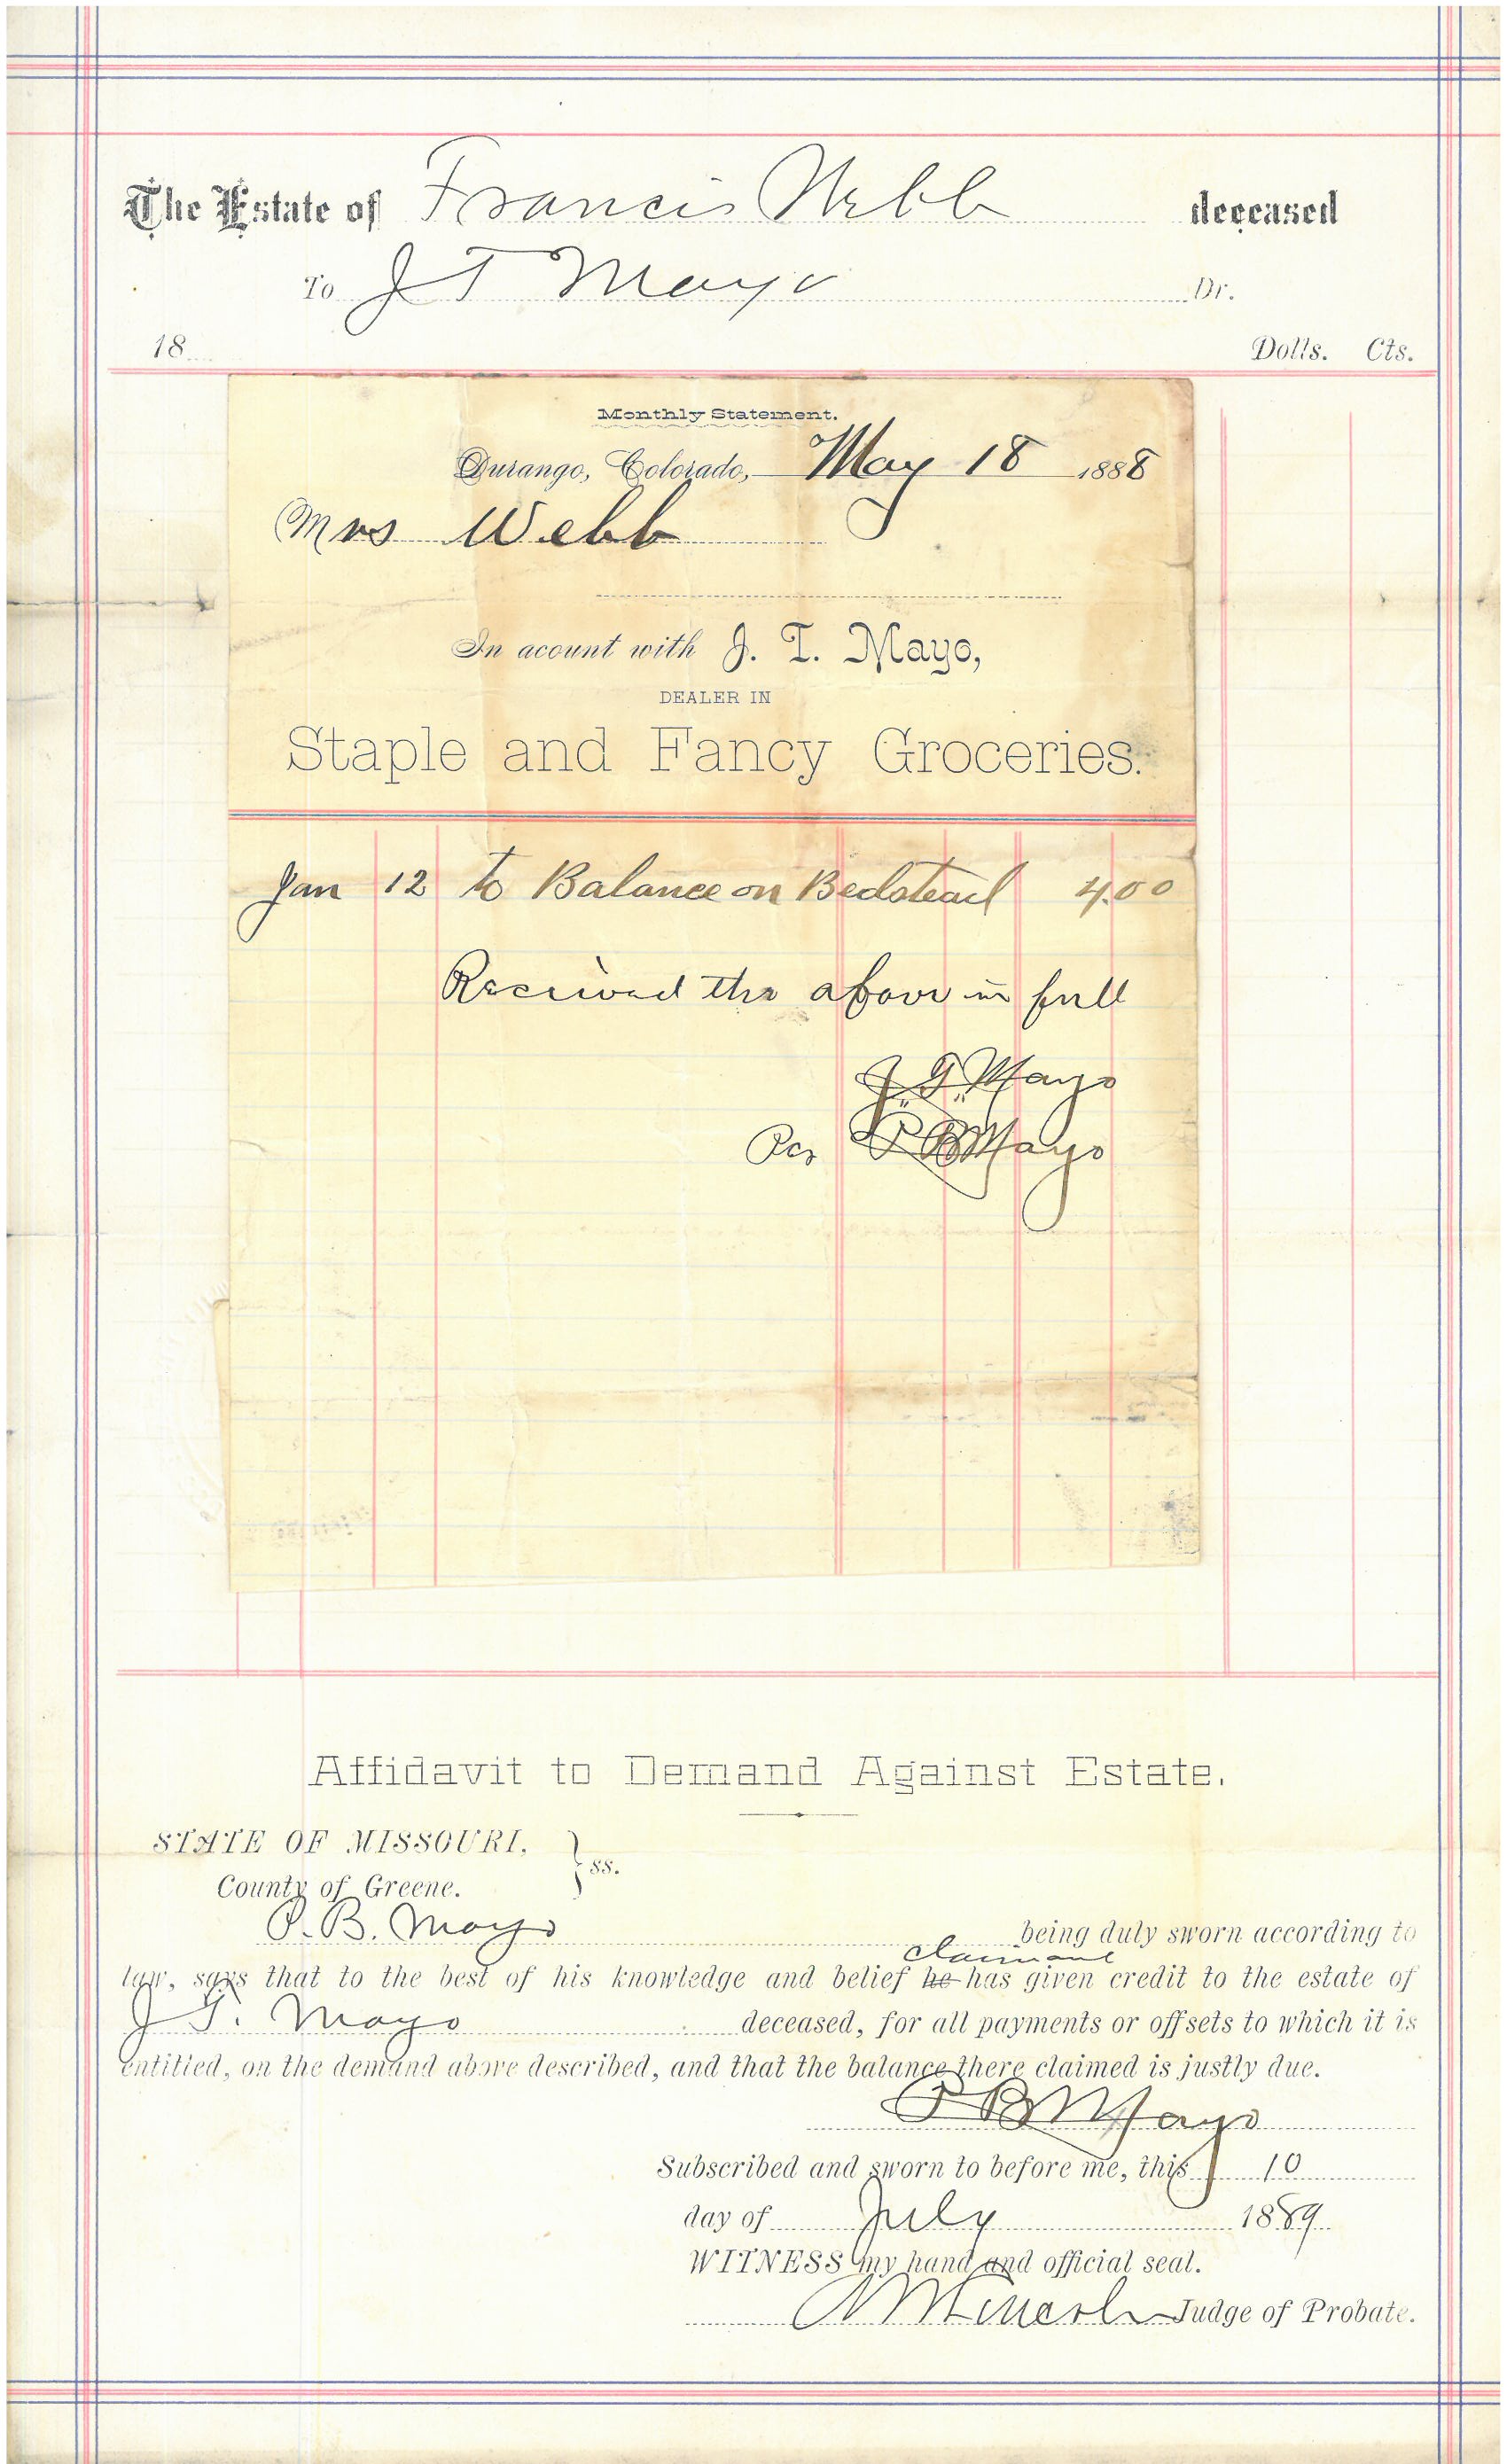 The Estate of Francis Webb deceased
To J T Mayo Dr.
18 Dolls. Cts.
Monthly Statement.
Durango, Colorado, May 18 1888
Mrs Webb
In acount with J. T. Mayo,
DEALER IN
Staple and Fancy Groceries.
Jan 12 to Balance on Bedstead 4.00
Received the above in full
J. T. Mayo
Per P B Mayo
Affidavit to Demand Against Estate.
STATE OF MISSOURI, } ss.
County of Greene.
P. B. Mayo being duly sworn according to
claimant
law, says that to the best of his knowledge and belief he has given credit to the estate of
J T. Mayo deceased, for all payments or offsets to which it is
entitled, on the demand above described, and that the balance there claimed is justly due.
P B Mayo
Subscribed and sworn to before me, this 10
day of July 1889
WITNESS my hand and official seal.
Judge of Probate.